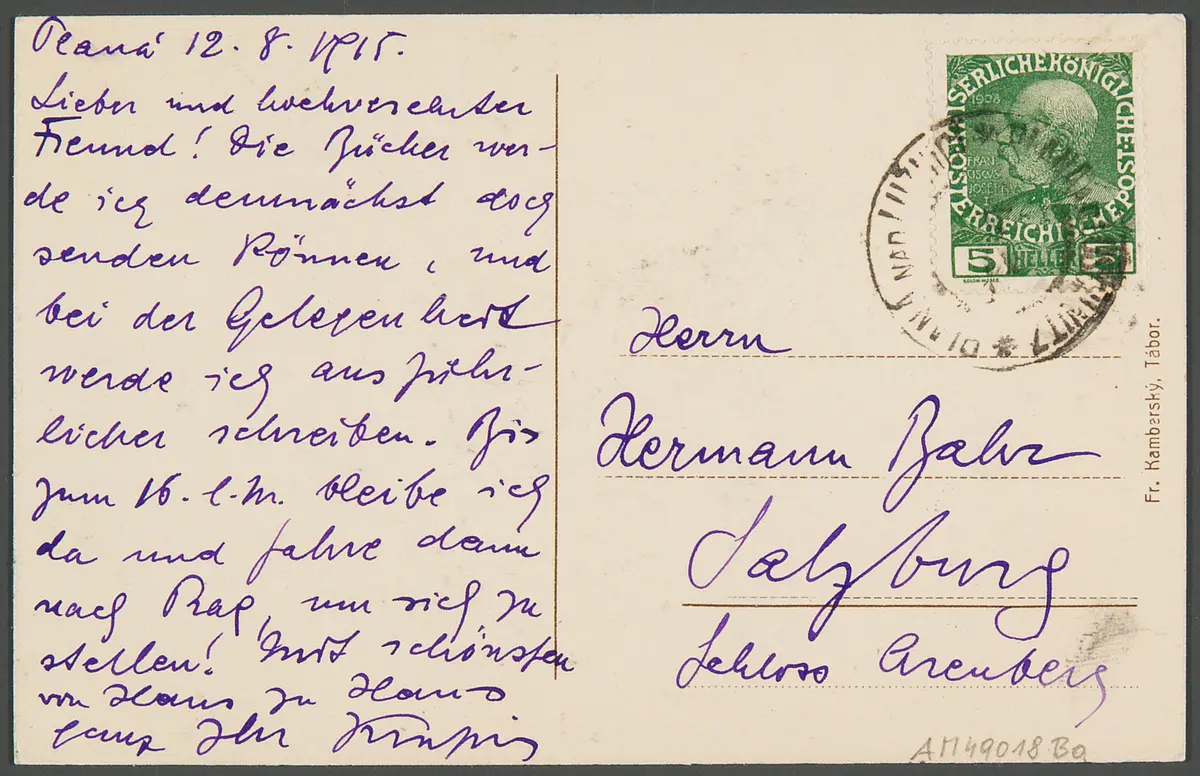 Planá 12. 8. 1915.
Lieber und hochverehrter
Freund! Die Bücher wer-
de ich demnächst doch
senden können, und
bei der Gelegenheit
werde ich ausführ-
licher schreiben. Bis
zum 16. l. M. bleibe ich
da und fahre dann
nach Prag, um sich zu
stellen! Mit schönsten
von Haus zu Haus
ganz Ihr
KAISERLICHE KÖNIGLICHE POST
ÖSTERREICHISCHE
1908
FRAN
CISCVS
JOSEPH I
5 HELLER 5
KOLOM. MOSER
PLANÁ NAD LUŽNICÍ
Herrn
Hermann Bahr
Salzburg
Schloss Arenberg
Fr. Kamberský, Tábor.
AM49018Ba